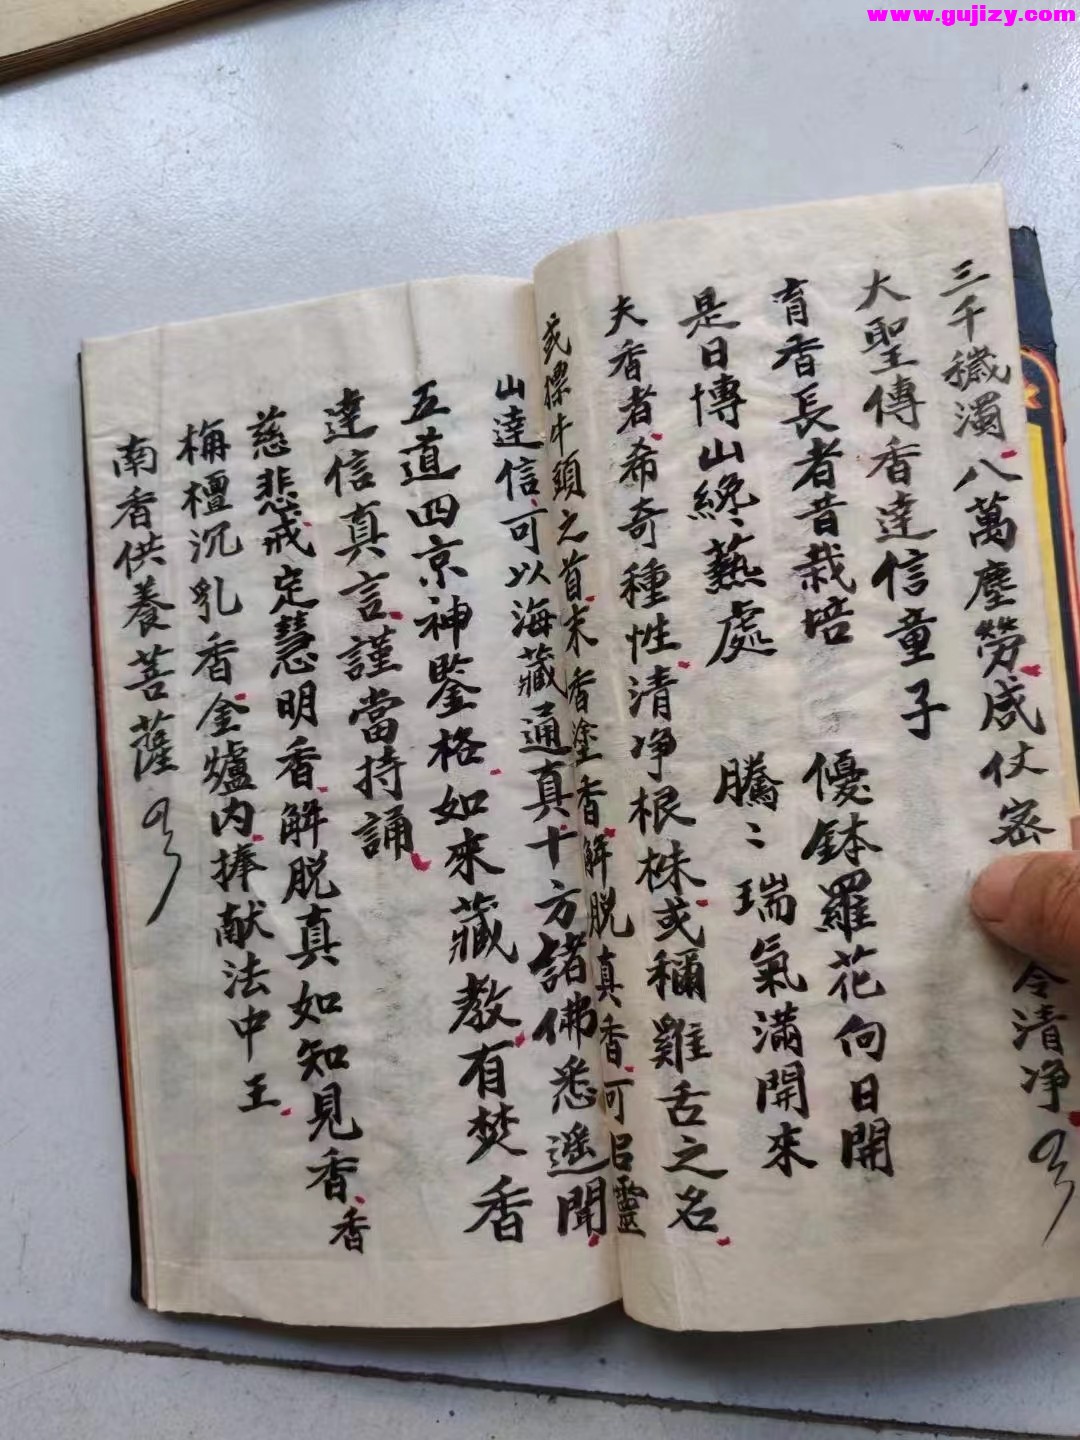 www.gujizy.com
三千穢濁八萬塵勞咸仗密令清净
大聖傳香達信童子
育香長者昔栽培 優鉢羅花向日開
是日博山纔〻爇處 騰〻瑞氣滿開來
夫香者希奇種性清净根株或稱雞舌之名
或標牛頭之首末香塗香解脱真香可召靈
山達信可以海藏通真十方諸佛悉遥聞
五道四京神鑒格如來藏教有焚香
達信真言謹當持誦
慈悲戒定慧明香解脱真如知見香香
栴檀沉乳香金爐内捧献法中王
南香供養菩薩